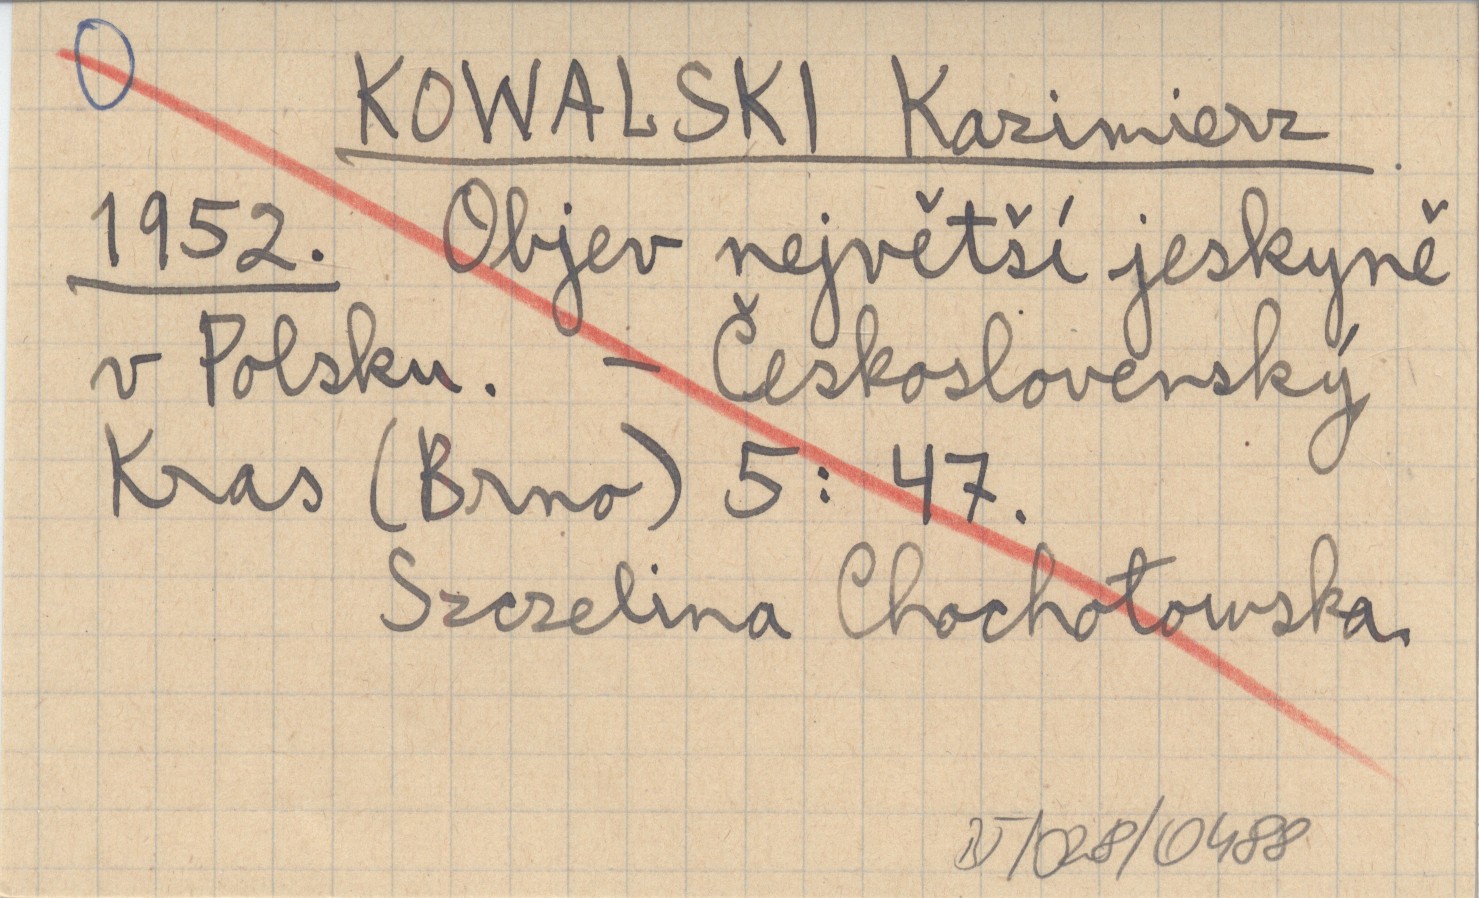 KOWALSKI Kazimierz
1952. Objev největší jeskyně
v Polsku. – Československý
Kras (Brno) 5: 47.
Szczelina Chochołowska.
IV/028/0488